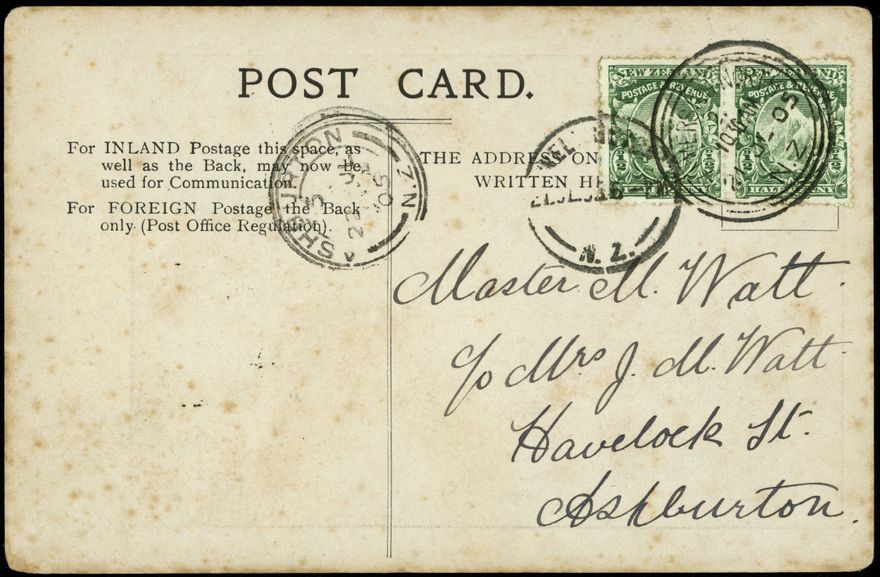 POST CARD.
For INLAND Postage this space, as
well as the Back, may now be
used for Communication.
For FOREIGN Postage the Back
only (Post Office Regulation).
THE ADDRESS ON
WRITTEN HE
NEW ZEALAND
POSTAGE & REVENUE
POSTAGE & REVENUE
HALF PENNY
ASHBURTON N.Z
05
N.Z.
1030AM
05
N.Z
Master M. Watt.
c/o Mrs J. M. Watt
Havelock St.
Ashburton.